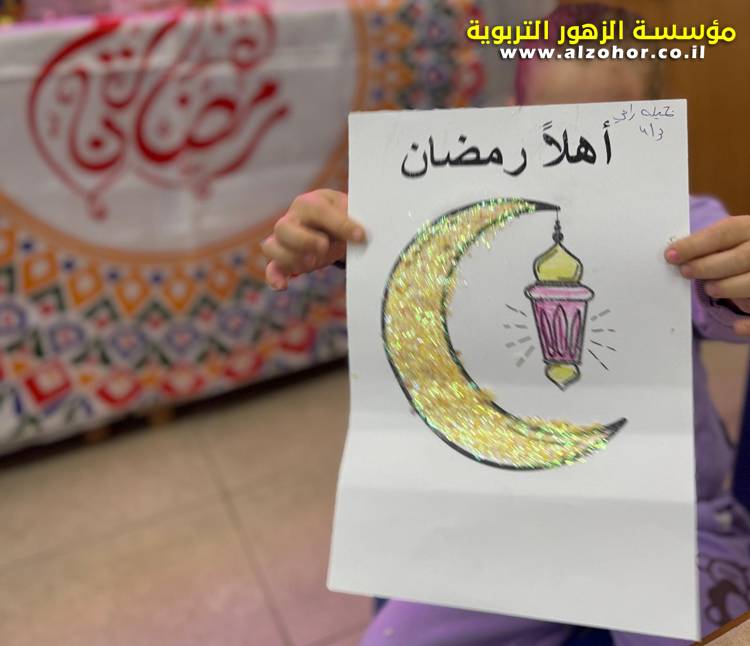 مؤسسة الزهور التربوية
www.alzohor.co.il
أهلاً رمضان
رمضان